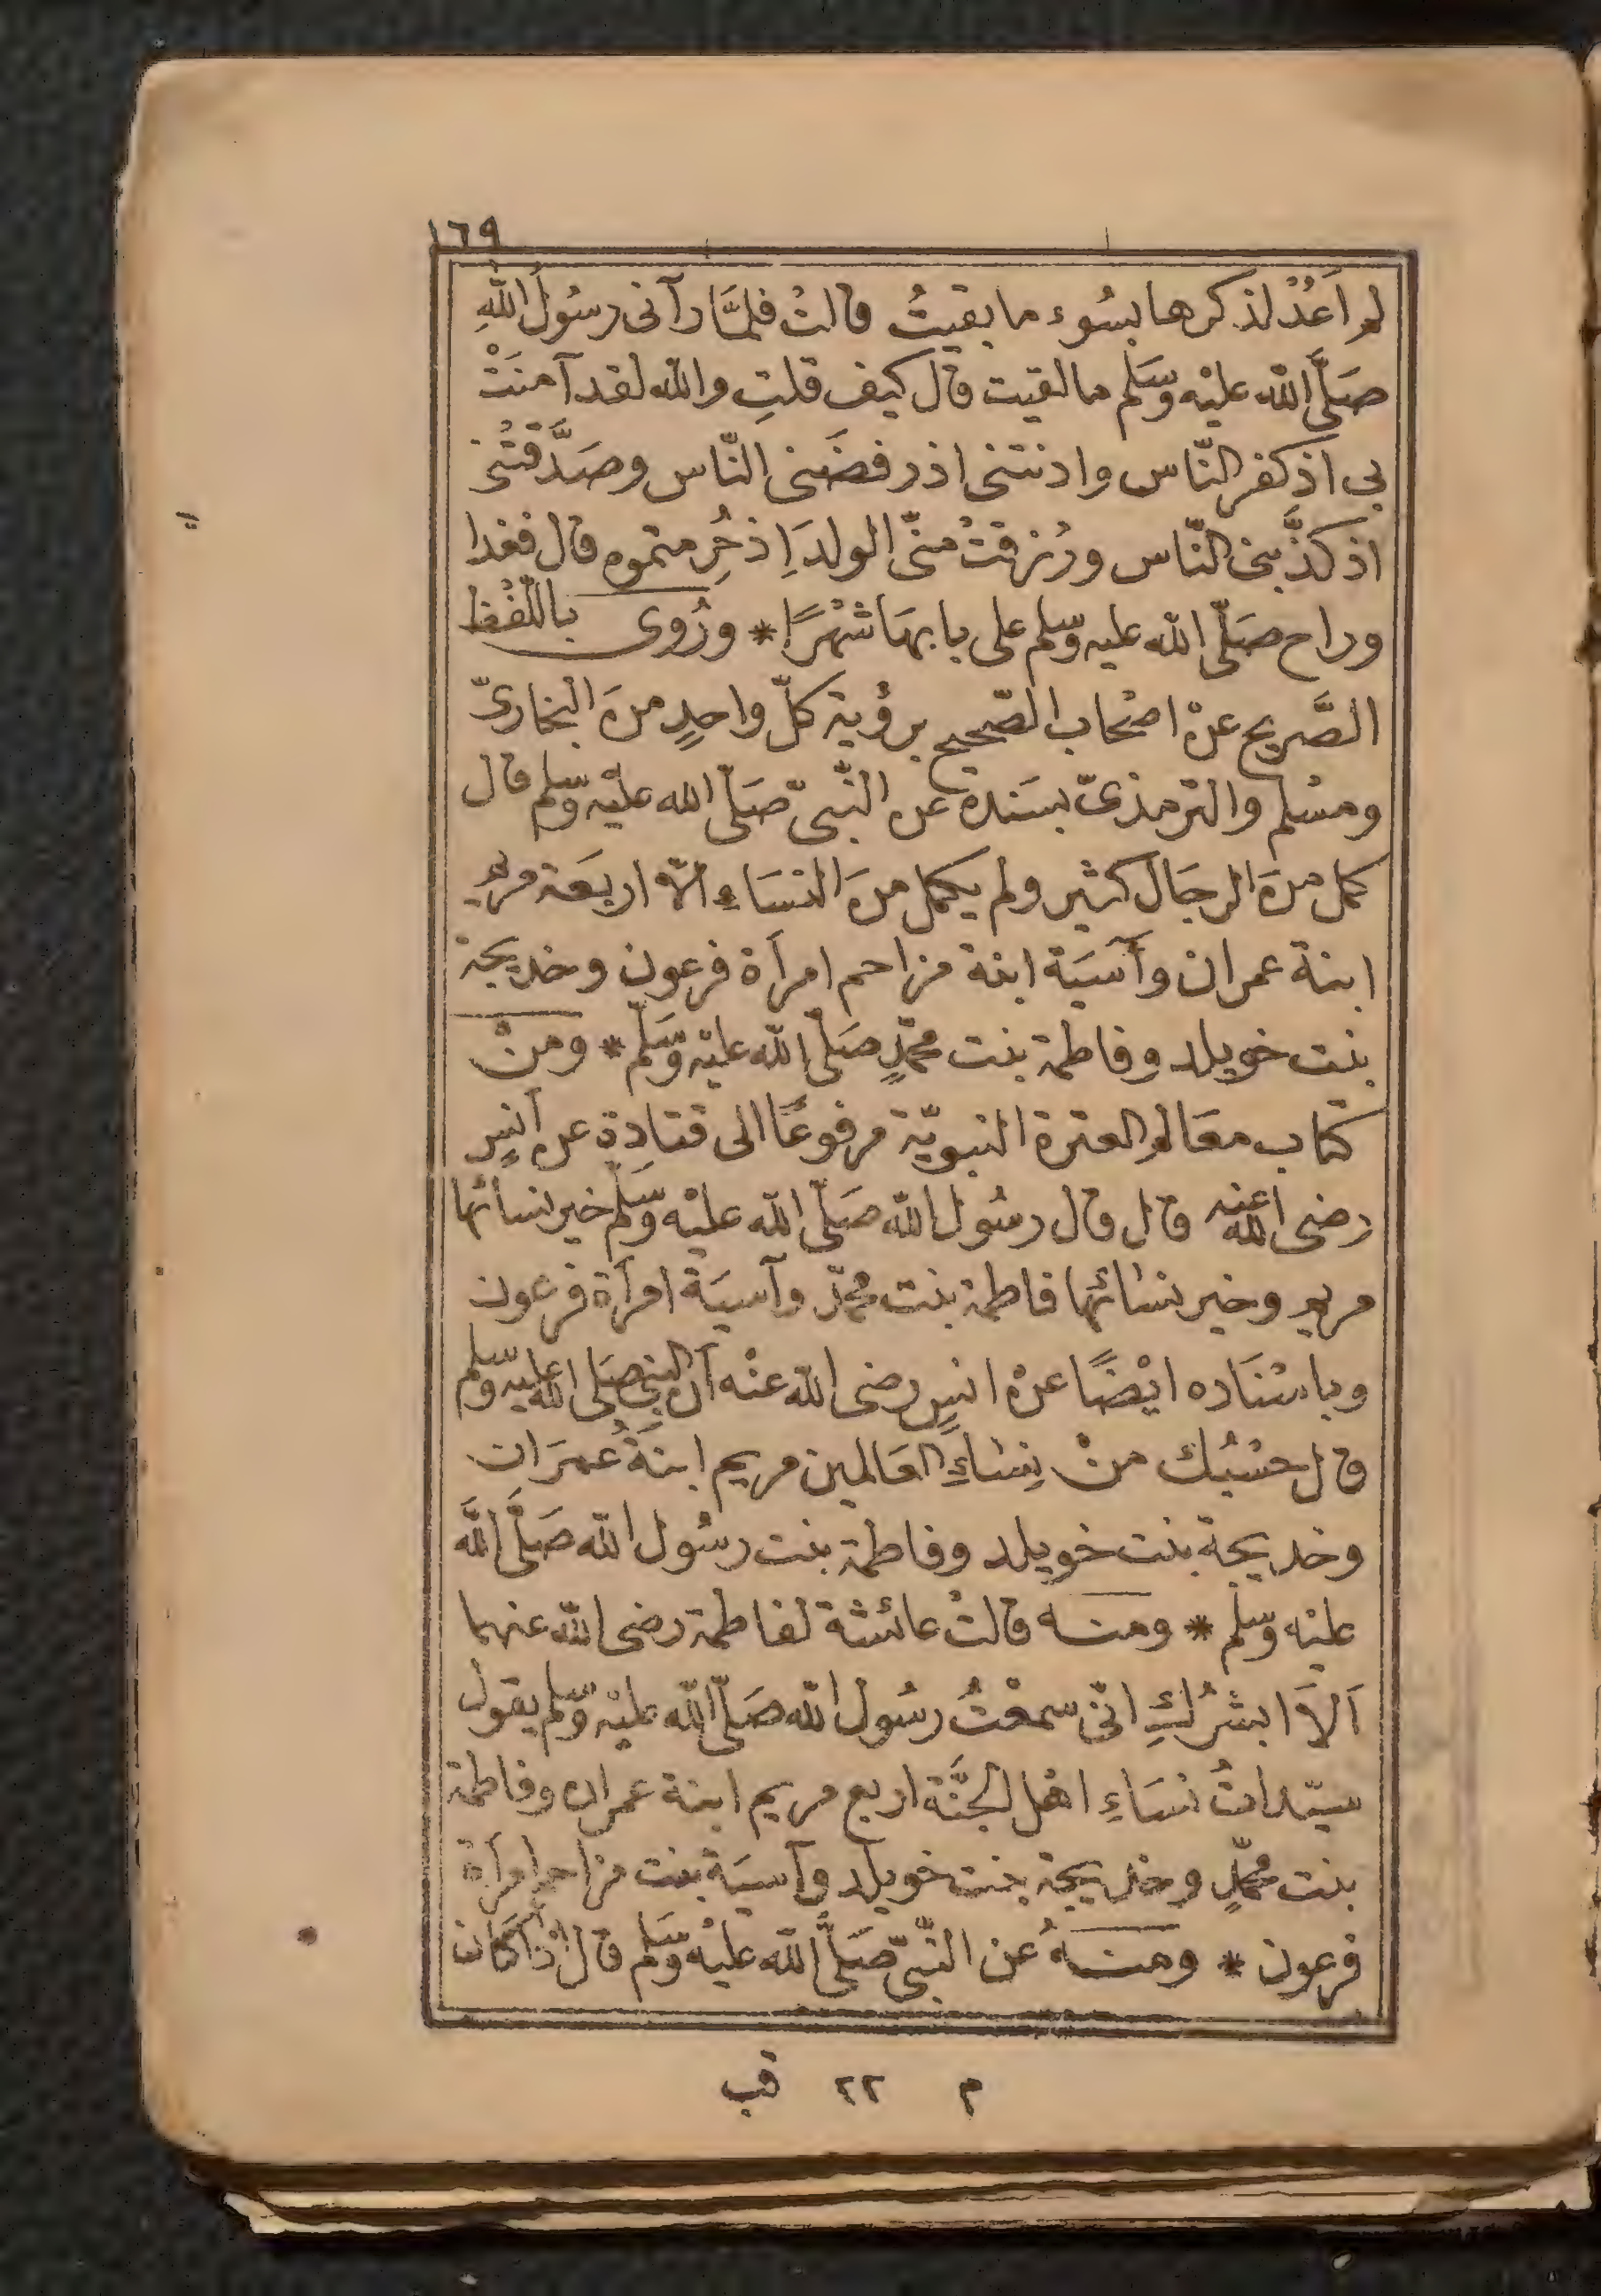 ١٦٩
لم اَعُدْ لذكرها بسُوء ما بقيتُ قالتْ فلمَّا رآنى رسُولُ اللهِ
صَلَّى الله عليْه وسَلم ما لقيت قال كيف قلتِ والله لقد آمنَتْ
بى اذ كفر النّاس وادنتنى اذ رفضَنى النّاس وصَدَّقتْنى
اذ كذَّبنى النّاس ورُزقتْ منّى الولدَ اِذ حُرِمتموه قال فغدا
وراح صَلّى الله عليه وسلم على بابهَا شهْرًا * ورُوى باللّفْظ
الصَّريح عنْ اصْحاب الصّحيح برؤية كلّ واحدٍ منَ البخارىّ
ومسْلم والترمذىّ بسَنده عن النّبىّ صَلّى الله عليْه وسّلم قال
كمل منَ الرجَال كثير ولم يكمل منَ النسَاءِ الاّ اربعَة مريم
ابنة عمران وآسيَة ابنة مزاحم امرأة فرعون وخديجة
بنت خويلد وفاطمة بنت محمّدٍ صَلّى الله عليْه وسَّلم * ومنْ
كتاب معَالم العترة النبويّة مرفوعًا الى قتادة عن أنسٍ
رضى الله عنه قال قال رسُول الله صَلّى الله عليْه وسَلّم خير نسائها
مريم وخير نسائها فاطمة بنت محمّد وآسيَة امرأة فرعون
وباسْنَاده ايْضًا عنْ انسٍ رضى الله عنْه أن النبى صَلى الله عليه وسّلم
قال حسْبُك منْ نِسَاءِ العَالمين مريم ابنَةُ عمرَان
وخديجة بنت خويلد وفاطمة بنت رسُول الله صَلَّى اللَّه
عليْه وسّلم * ومنه قالتْ عائشة لفاطمة رضى الله عنهما
اَلاَ ابشرُكِ انّى سمعْتُ رسُول الله صَلّى الله عليْه وسّلم يقول
سيّداتُ نسَاءِ اهْل الجنَّة اربع مريم ابنة عمران وفاطمة
بنت محمّدٍ وخديجة بنت خويلد وآسيَة بنت مزاحم امرأة
فرعون * ومنهُ عن النّبىّ صَلَّى الله عليْه وسَلم قال اذَا كان
م ٢٢ قب